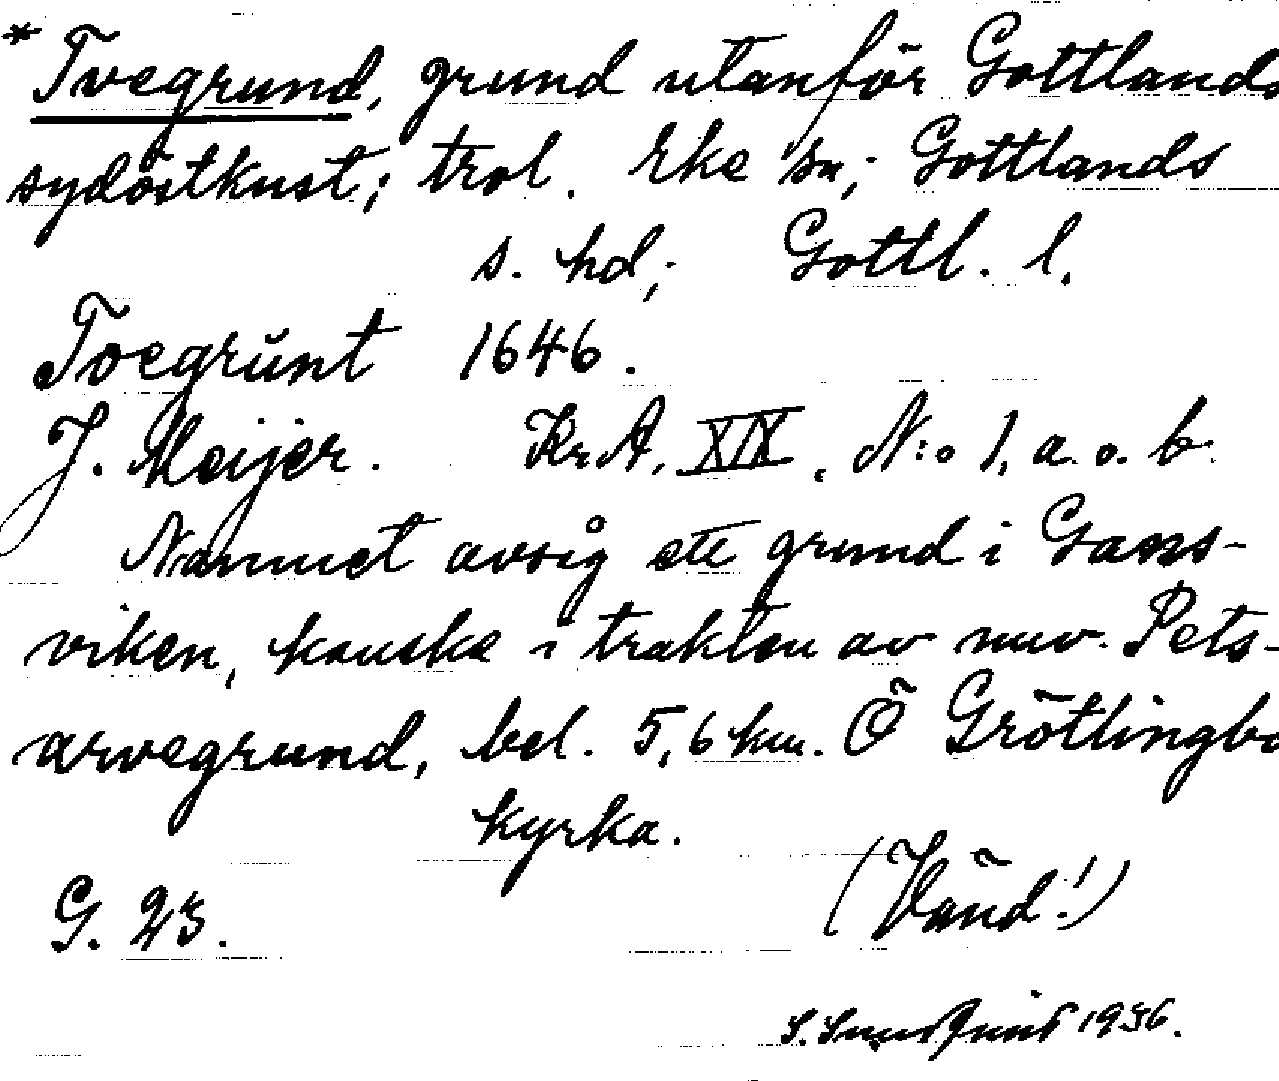 * Tvegrund, grund utanför Gottlands
sydöstkust; trol. Eke sn; Gottlands
s. hd; Gottl. l.
Toegrŭnt 1646.
J. Meijer. Kr.A. XIX. N:o 1, a. o. b.
Namnet avsåg ett grund i Gans-
viken, kanske i trakten av nuv. Pets-
arvegrund, bel. 5,6 km. Ö Grötlingbo
kyrka.
(Vänd!)
G. 23.
1936.